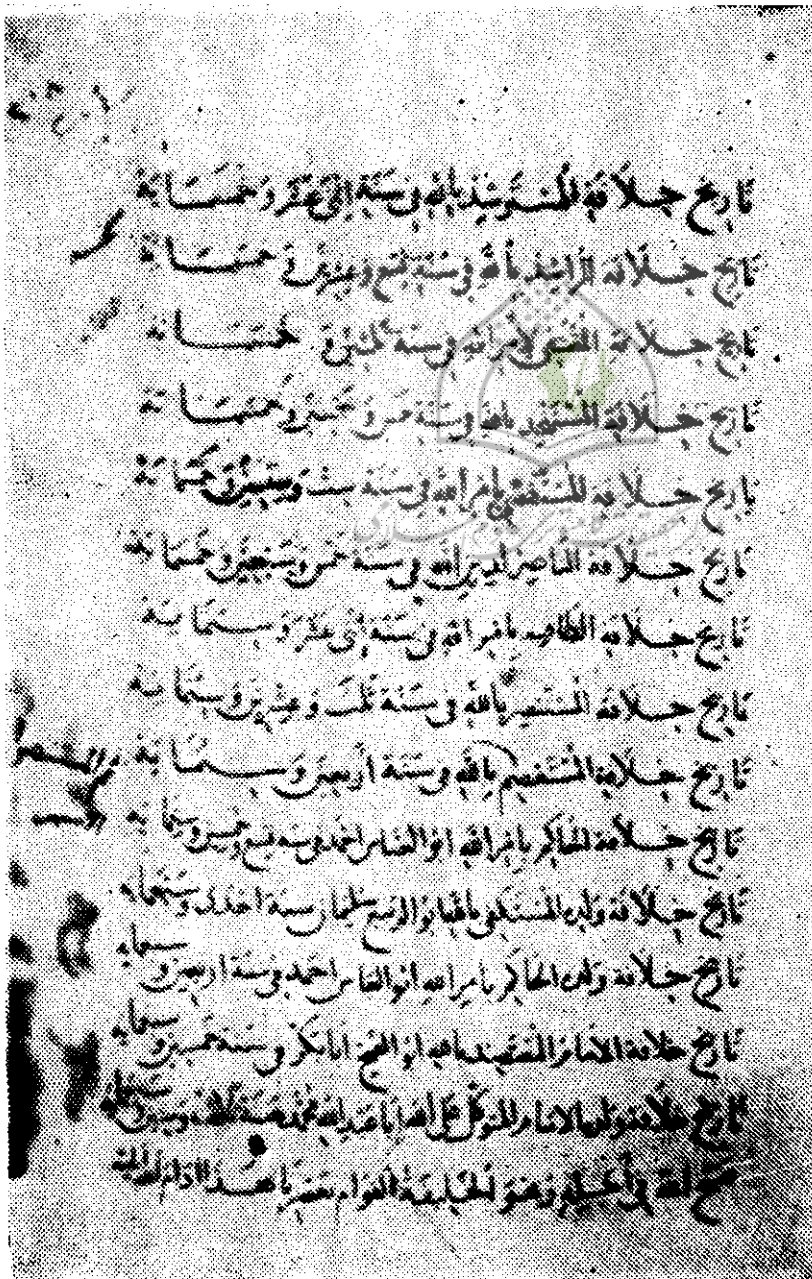 تاريخ خلافة المسترشد بالله في سنة اثنى عشر وخمسمائة
تاريخ خلافة الراشد بالله في سنة تسع وعشرين وخمسمائة
تاريخ خلافة المقتفى لأمر الله في سنة ثلثين وخمسمائة
تاريخ خلافة المستنجد بالله في سنة خمس وخمسين وخمسمائة
تاريخ خلافة المستضئ بأمر الله في سنة ست وستين وخمسمائة
تاريخ خلافة الناصر لدين الله في سنة خمس وسبعين وخمسمائة
تاريخ خلافة الظاهر بأمر الله في سنة اثنى عشر وستمائة
تاريخ خلافة المستنصر بالله في سنة ثلث وعشرين وستمائة
تاريخ خلافة المستعصم بالله في سنة اربعين وستمائة
تاريخ خلافة الحاكم بامر الله ابو العباس احمد في سنة تسع وخمسين وستمائة
تاريخ خلافة ولده المستكفى بالله ابو الربيع سليمان سنة احدى وسبعمائة
تاريخ خلافة ولده الحاكم بامر الله ابو العباس احمد في سنة اربعين وسبعمائة
تاريخ خلافة الامام المعتضد بالله ابو الفتح ابا بكر في سنة خمسين وسبعمائة
تاريخ خلافة ولده الامام المتوكل على الله ابا عبد الله محمد سنة ثلاثة وستين وسبعمائة
فسح الله في أجله وهو الخليفة القوام بمصر يا هذا ادام الله